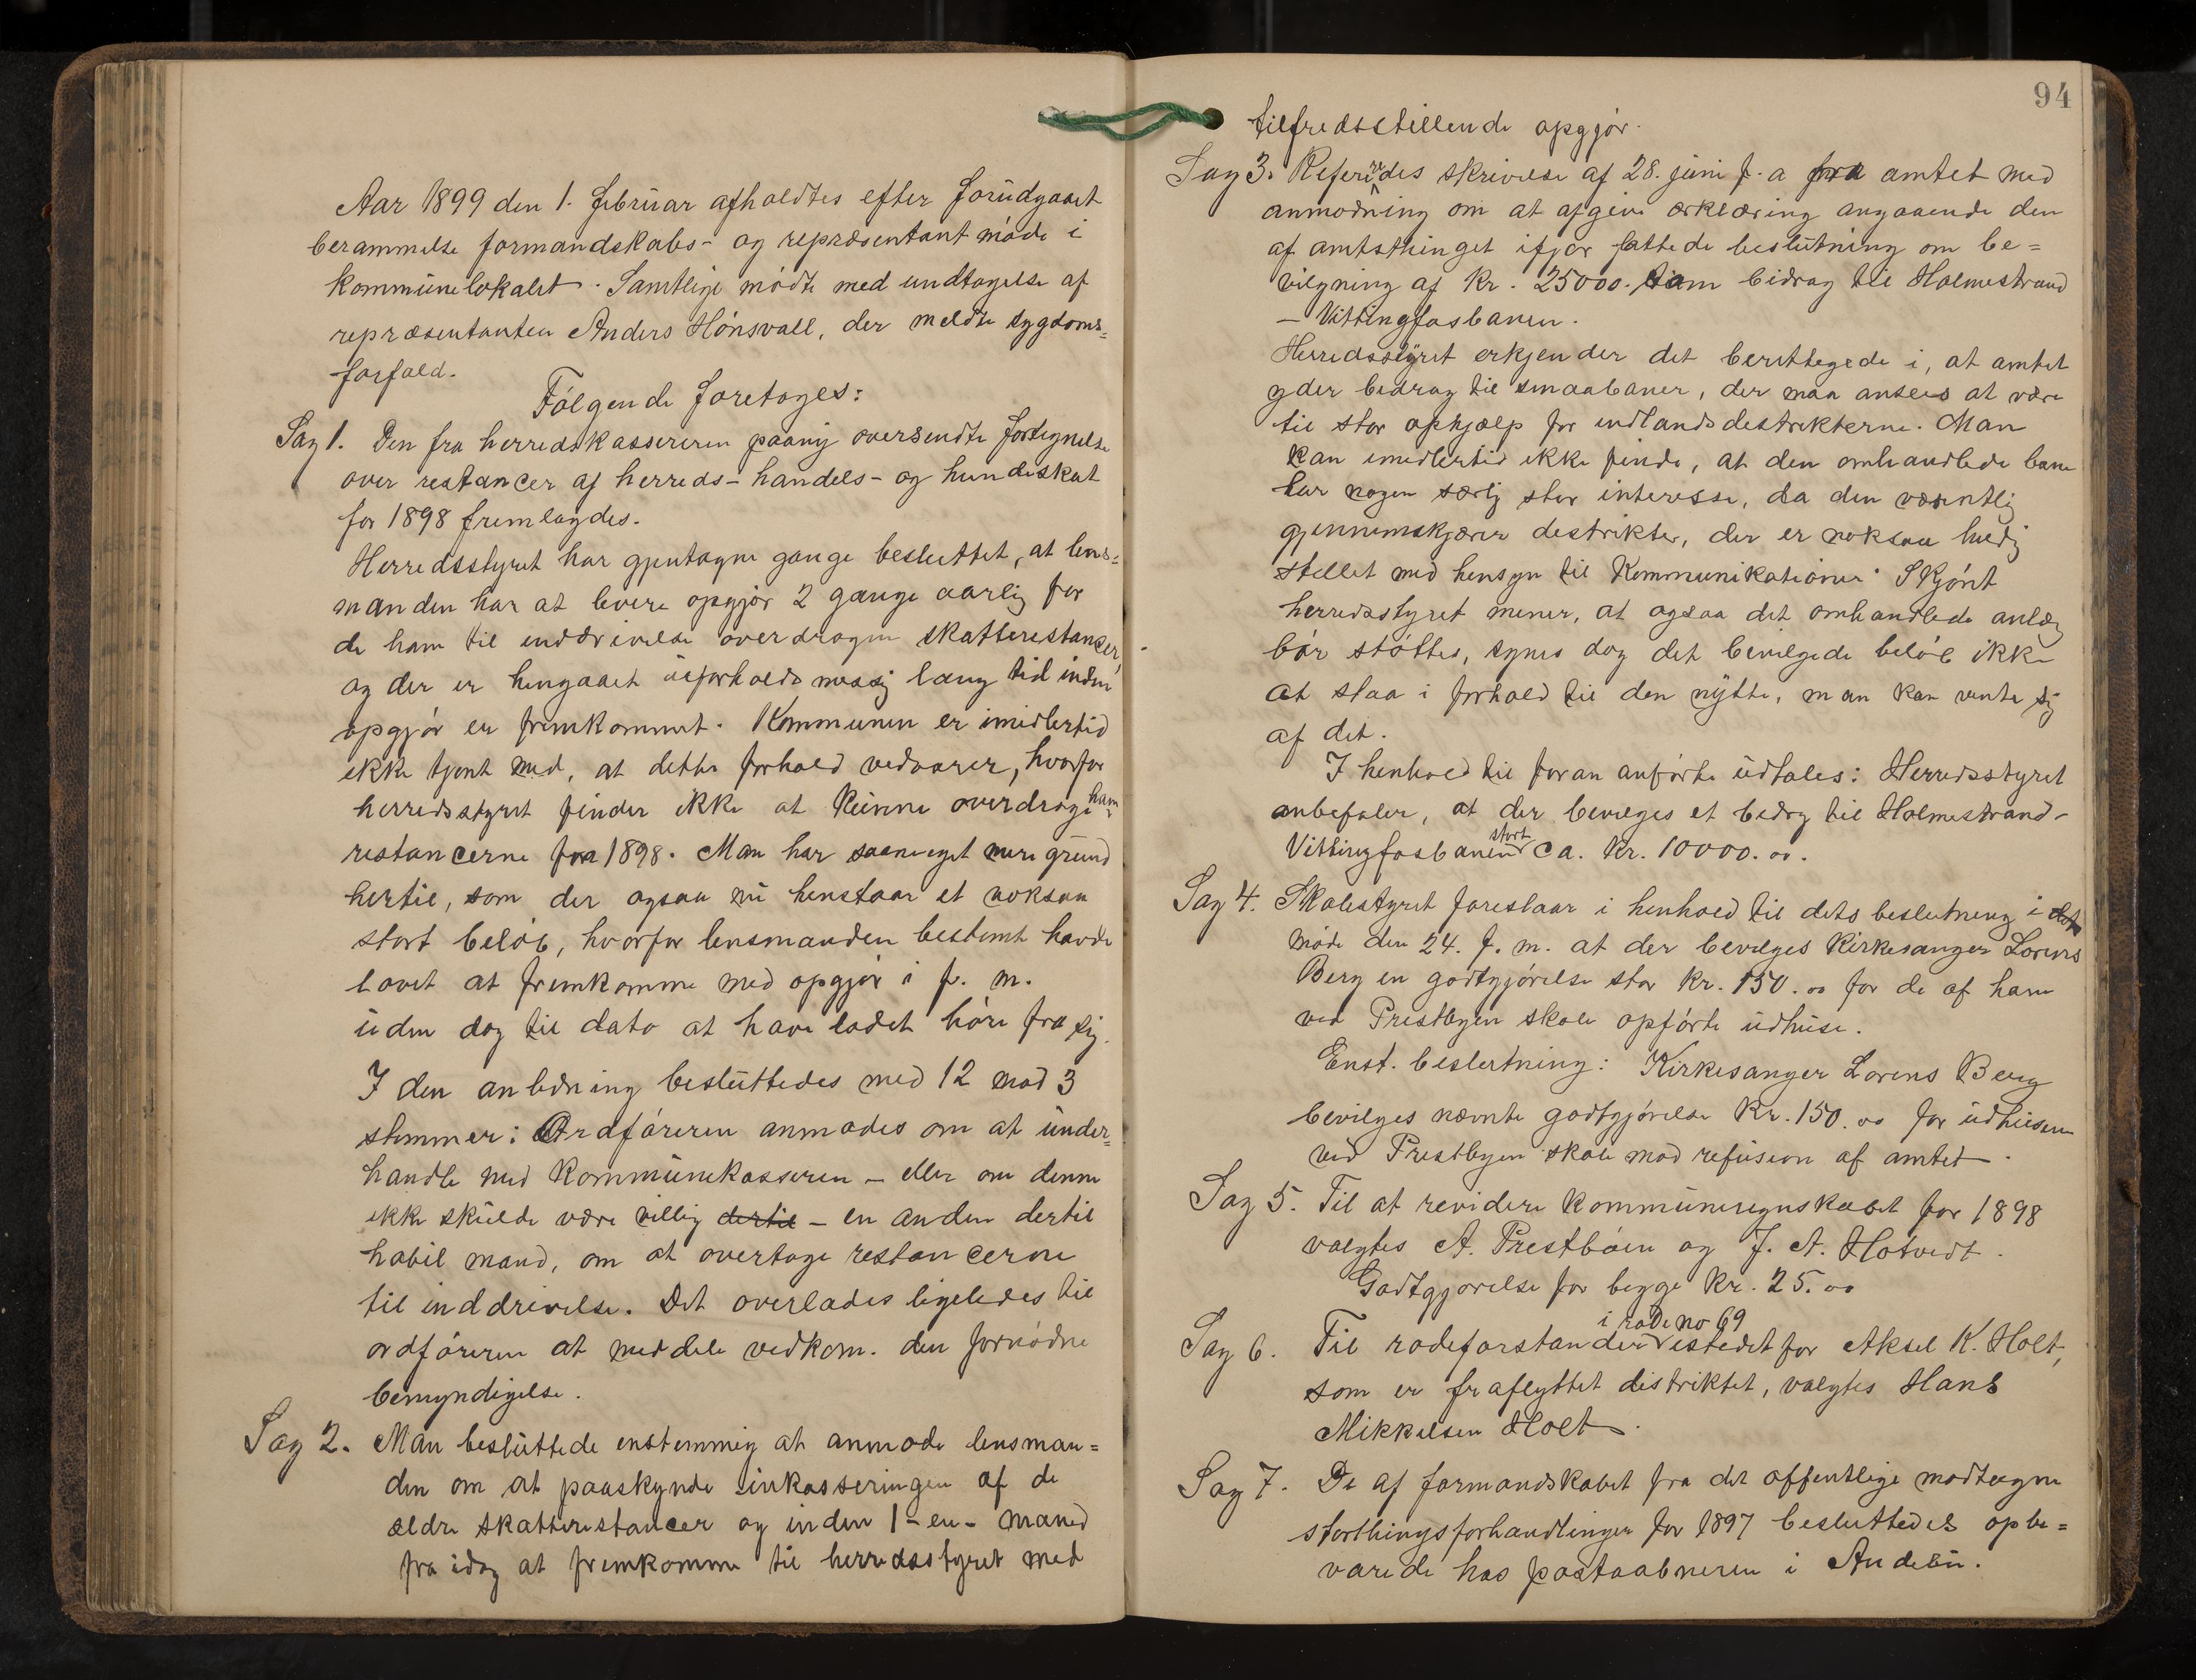 Aar 1899 den 1. februar afholdtes efter forudgaaet
berammelse formandskabs- og repræsentantmøde i
kommunelokalet. Samtlige mødte med undtagelse af
repræsentanten Anders Hønsvall, der meldte sygdoms=
forfald.
Følgende foretoges:
Sag 1. Den fra herredskassereren paany oversendte fortegnelse
over restancer af herreds- handels- og hundeskat
for 1898 fremlagdes.
Herredsstyret har gjentagne gange besluttet, at lens=
manden har at levere opgjør 2 gange aarlig for
de ham til inddrivelse overdragne skatterestancer,
og der er hengaaet uforholdsmæssig lang tid inden
opgjør er fremkommet. Kommunen er imidlertid
ikke tjent med, at dette forhold vedvarer, hvorfor
herredsstyret finder ikke at kunne overdrage ham
restancerne fra 1898. Man har saameget mere grund
hertil, som der ogsaa nu henstaar et noksaa
stort beløb, hvorfor lensmanden bestemt havde
lovet at fremkomme med opgjør i f. m.
uden dog til dato at have ladet høre fra sig.
I den anledning besluttedes med 12 mod 3
stemmer: Ordføreren anmodes om at under=
handle med kommunekassereren – eller om denne
ikke skulde være villig dertil – en anden dertil
habil mand, om at overtage restancerne
til inddrivelse. Det overlades ligeledes til
ordføreren at meddele vedkom. den fornødne
bemyndigelse.
Sag 2. Man besluttede enstemmig at anmode lensman=
den om at paaskynde inkasseringen af de
ældre skatterestancer og inden 1 - en - maned
fra idag at fremkomme til herredsstyret med
94
tilfredsstillende opgjør.
Sag 3. Refereredes skrivelse af 28. juni f. a fra amtet med
anmodning om at afgive erklæring angaaende den
af amtsthinget ifjor fattede beslutning om be=
vilgning af kr. 25000. som bidrag til Holmestrand
– Vittingfosbanen.
Herredsstyret erkjender det berettigede i, at amtet
yder bidrag til smaabaner, der maa ansees at være
til stor ophjælp for indlandsdestrikterne. Man
kan imidlertid ikke finde, at den omhandlede bane
har nogen særlig stor interesse, da den væsentlig
gjennemskjærer destrikter, der er noksaa heldig
stillet med hensyn til Kommunikationer. Skjønt
herredsstyret mener, at ogsaa det omhandlede anlæg
bør støttes, synes dog det bevilgede beløb ikke
at staa i forhold til den nytte, man kan vente sig
af det.
I henhold til foran anførte udtales: Herredsstyret
anbefaler, at der bevilges et bidrag til Holmestrand-
Vittingfosbanen stort ca. kr. 10000.00.
Sag 4. Skolestyret foreslaar i henhold til dets beslutning i det
møde den 24. f. m. at der bevilges Kirkesanger Lorens
Berg en godtgjørelse stor kr. 150.00 for de af ham
ved Prestbyen skole opførte udhuse.
Enst. beslutning: Kirkesanger Lorens Berg
bevilges nævnte godtgjørelse kr. 150.00 for udhusene
ved Prestbyen skole mod refusion af amtet.
Sag 5. Til at revidere kommuneregnskabet for 1898
valgtes A. Prestbøen og J. A. Hotvedt.
Godtgjørelse for begge kr. 25.00
Sag 6. Til rodeforstander i rode no 69 istedet for Aksel K. Holt,
som er fraflyttet distriktet, valgtes Hans
Mikkelsen Holt.
Sag 7. De af formandskabet fra det offentlige modtagne
storthingsforhandlinger for 1897 besluttedes opbe=
varede hos postaabneren i Andebu.